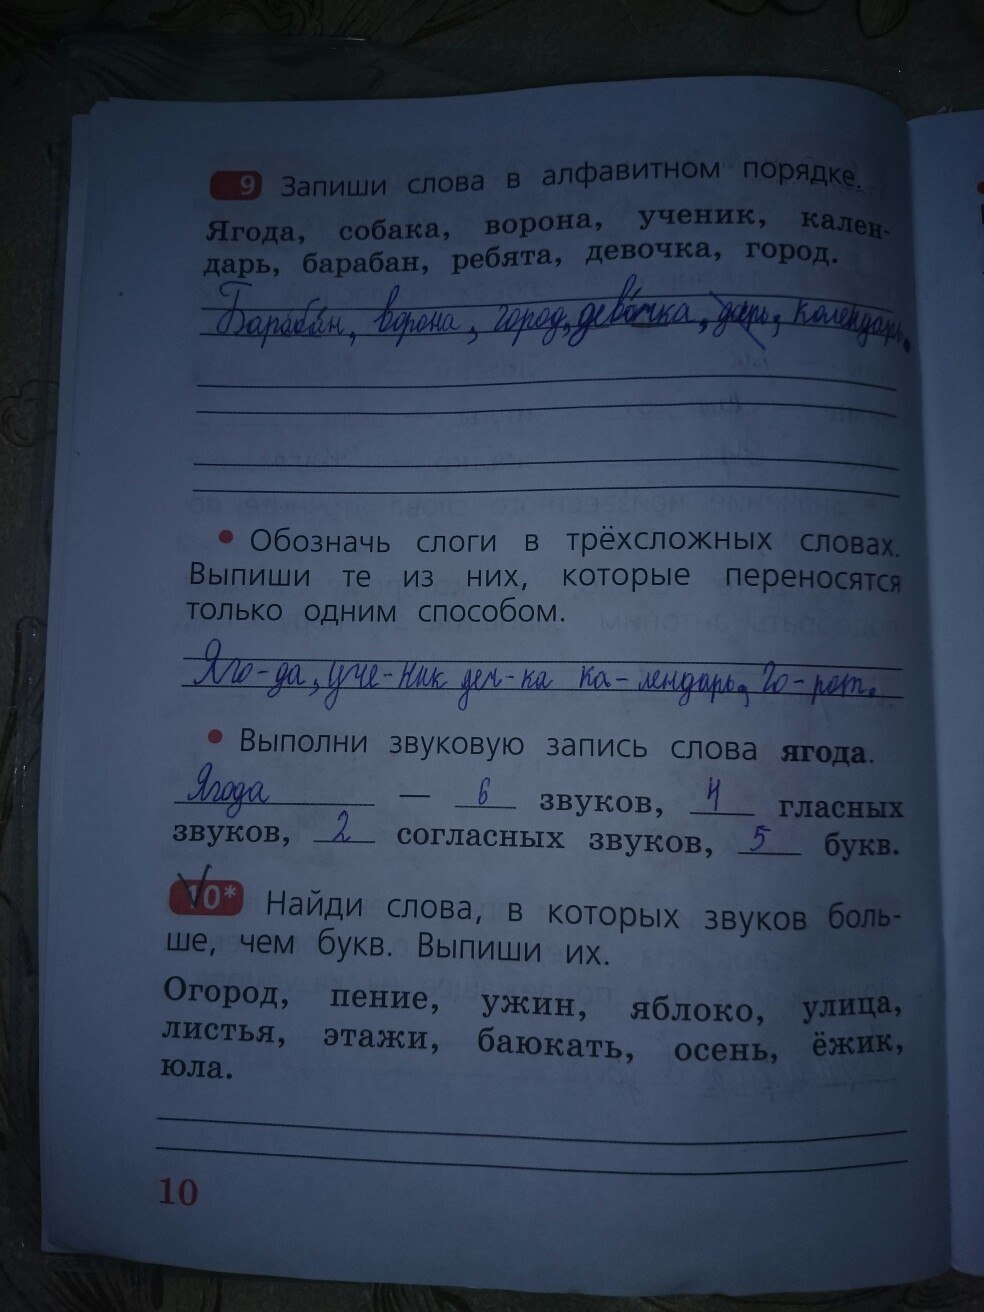 9 Запиши слова в алфавитном порядке.
Ягода, собака, ворона, ученик, кален-
дарь, барабан, ребята, девочка, город.
Барабан, ворона, город, девочка, дарь, календарь.
• Обозначь слоги в трёхсложных словах.
Выпиши те из них, которые переносятся
только одним способом.
Яго-да, уче-ник деч-ка ка-лендарь, го-рот.
• Выполни звуковую запись слова ягода.
Ягода — 6 звуков, 4 гласных
звуков, 2 согласных звуков, 5 букв.
10* Найди слова, в которых звуков боль-
ше, чем букв. Выпиши их.
Огород, пение, ужин, яблоко, улица,
листья, этажи, баюкать, осень, ёжик,
юла.
10